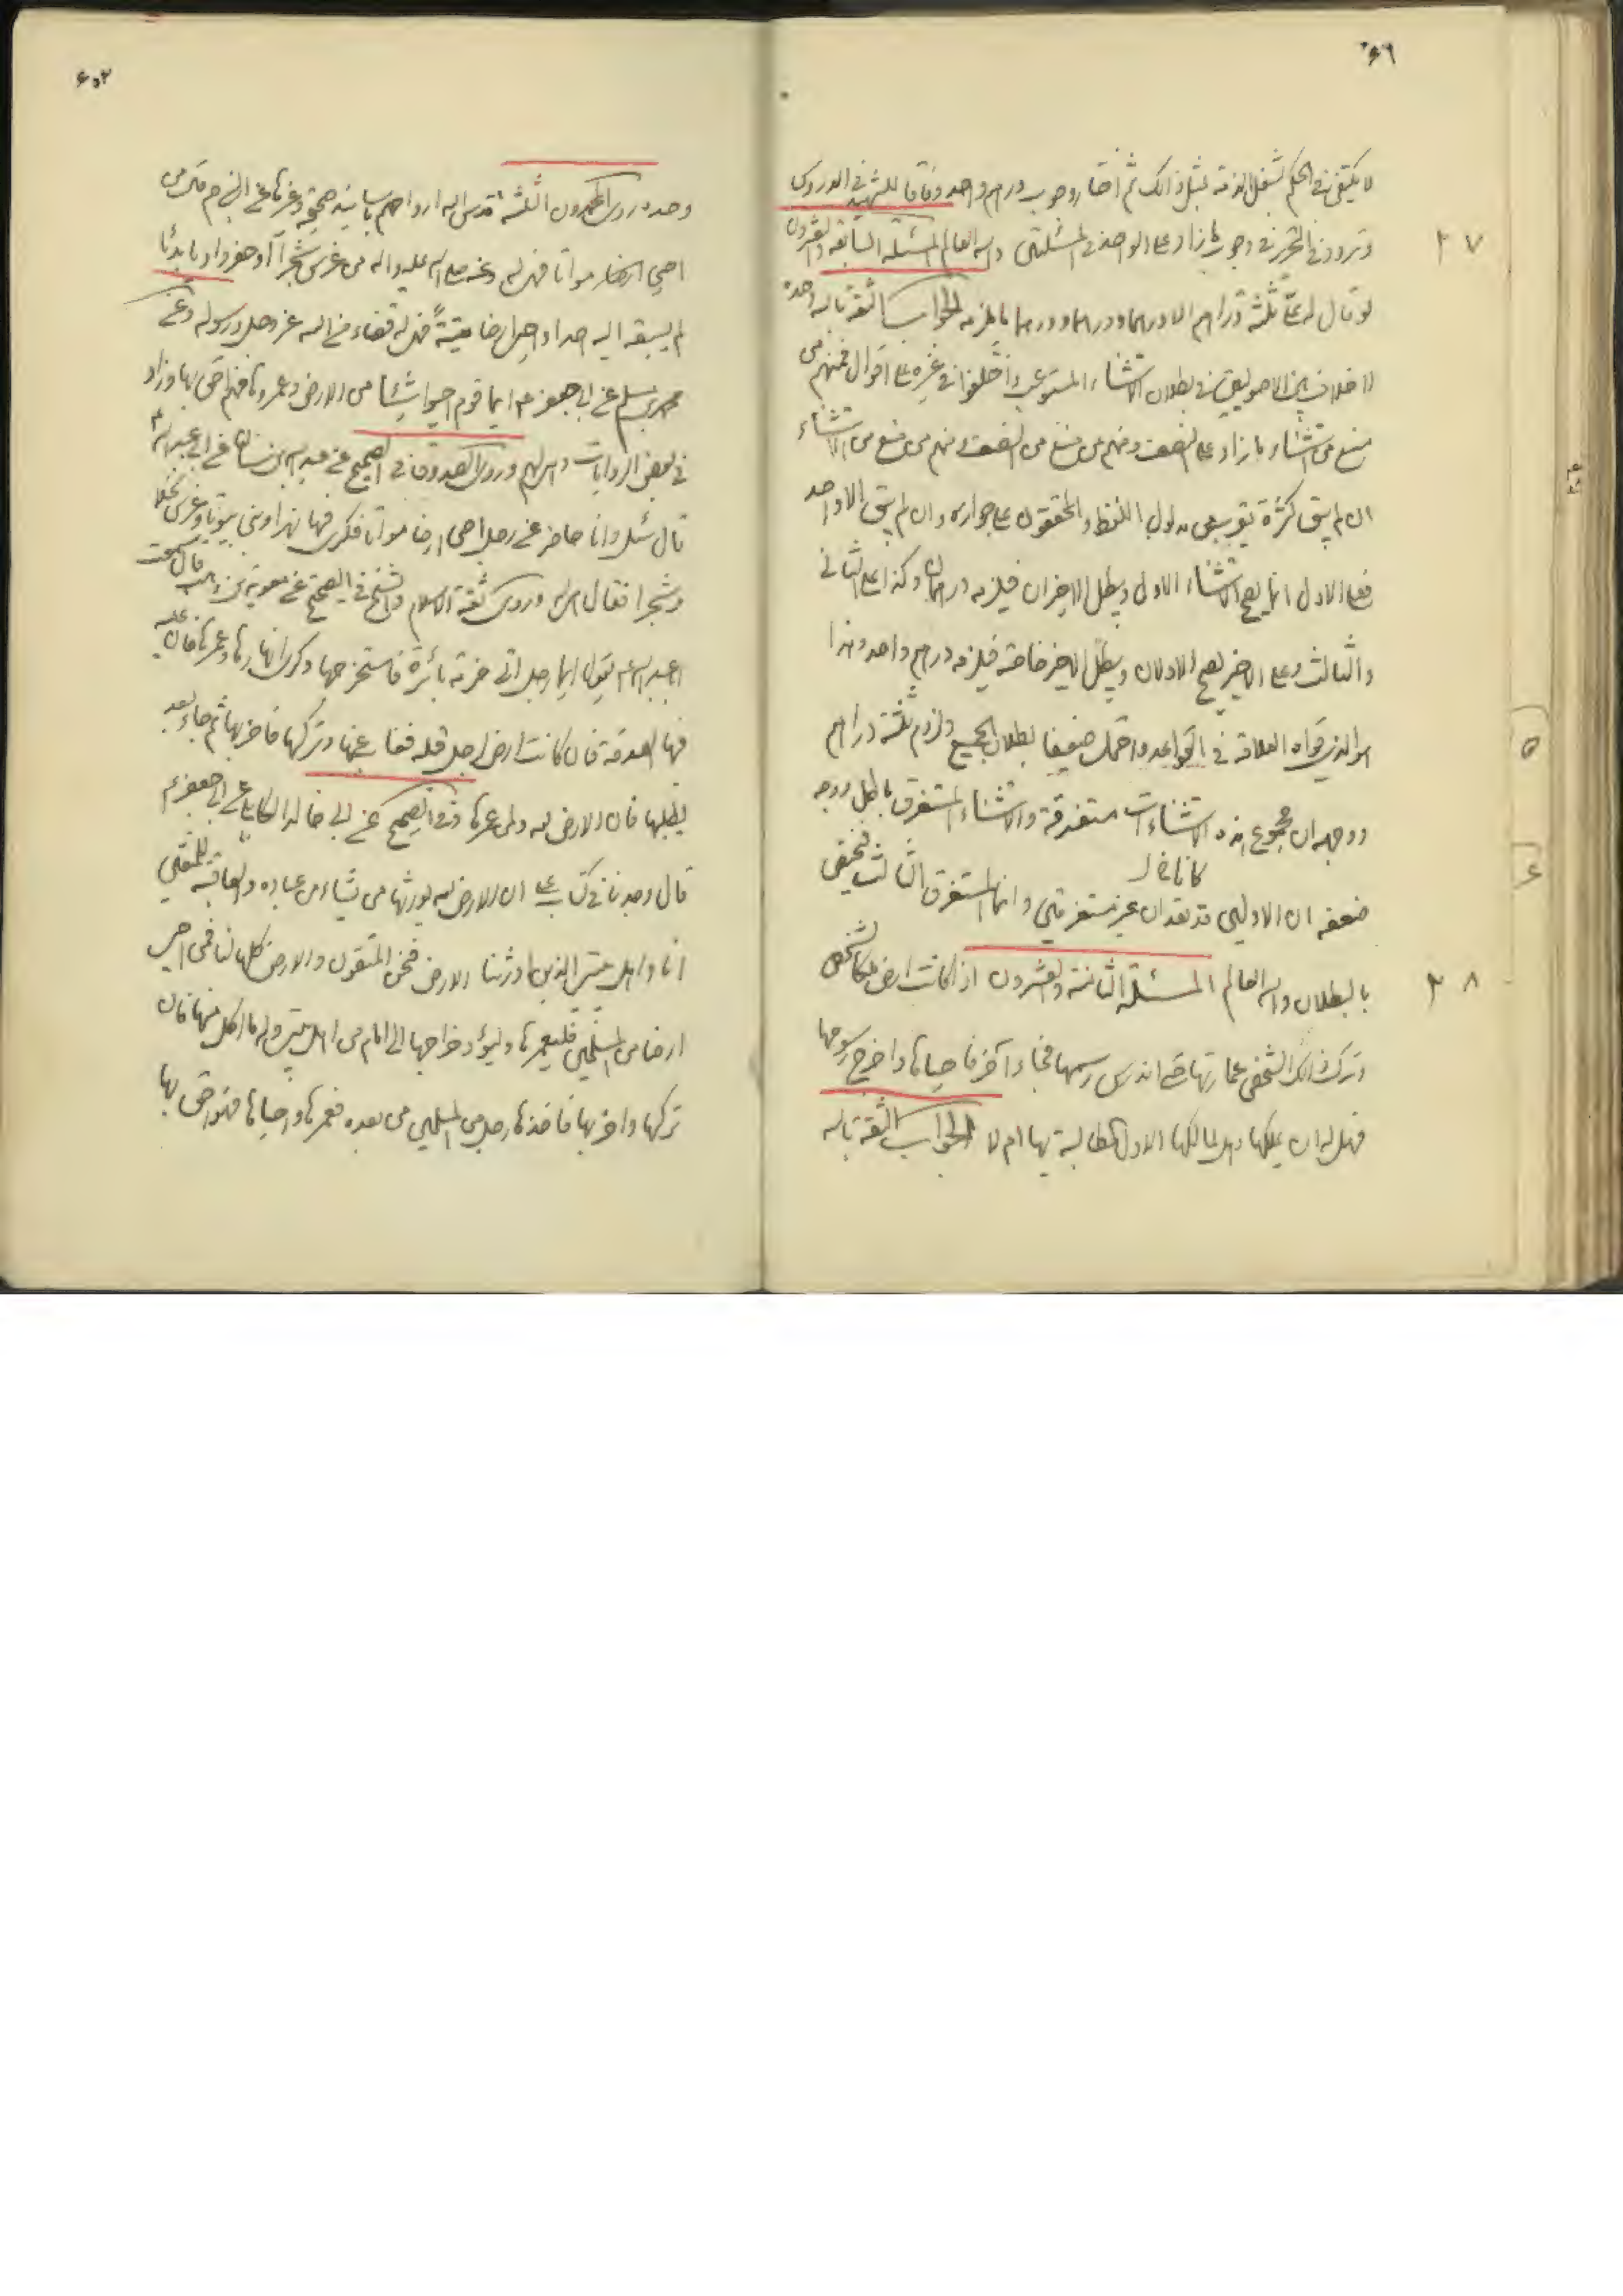 لا يكتفى فى الحكم لشغل الذمة بمثل ذالك ثم اختار وجوب درهم واحد وفاقا للشهيد فى الدروس
وتردد فى التحرير فى وجوب ما زاد على الواحد فى المسئلتين والله العالم المسئلة السابعة والعشرون
٢٧
لو قال له علىّ ثلثة دراهم الا درهما ودرهما ودرهما ما يلزمه الجواب الثقة بالله وحده
لا خلاف بين الاصوليين فى بطلان الاستثناء المستوعب واختلفوا فى غيره على اقوال فمنهم من
منع من استثناء ما زاد على النصف ومنهم من منع من النصف ومنهم من منع من الاستثناء
ان لم يبق كثرة تقرب من مدلول اللفظ والمحققون على جوازه وان لم يبق الا واحد
فعلى الاول انما يصح الاستثناء الاول ويبطل الاخيران فيلزمه درهمان وكذا على الثانى
والثالث وعلى الاخير يصح الاولان ويبطل الاخير خاصة فيلزمه درهم واحد وهذا
هو الذى قواه العلامة فى القواعد واحتمل ضعيفا بطلان الجميع ولزوم ثلثة دراهم
ووجهه ان مجموع هذه الاستثناءات مستغرقة والاستثناء المستغرق باطل ووجه
ضعفه ان الاوليين قد نفذا غير مستغرقين وانما المستغرق الثالث فيختص
بالبطلان والله العالم المسئلة الثامنة والعشرون اذا كانت ارض ملكا لشخص
٢٨
وترك ذالك الشخص عمارتها حتى اندرس رسمها فجاء آخر فاحياها واخرج رسومها
فهل له ان يملكها وهل لمالكها الاول المطالبة بها ام لا الجواب الثقة بالله
٦٠٢
وحده روى المحمدون الثلثة قدس الله ارواحهم باسانيد صحيحة وغيرها عن النبى ص قال من
احيى ارضا مواتا فهى له وعنه صلى الله عليه واله من غرس شجرا او حفر واديا بديّا
لم يسبقه اليه احد او احيى ارضا ميتةً فهى له قضاء من الله عز وجل ورسوله وعن
محمد بن مسلم عن ابى جعفر ع ايما قوم احيوا شيئا من الارض وعمروها فهم احق بها وزاد
فى بعض الروايات وهى لهم وروى الصدوق فى الصحيح عن عبد الله بن سنان عن ابى عبد الله ع
قال سئل وانا حاضر عن رجل احيى ارضا مواتا فكرى فيها نهرا وبنى بيوتا وغرس نخلا
وشجرا فقال هى له وروى ثقة الاسلام والشيخ فى الصحيح عن معوية بن وهب قال سمعت
ابا عبد الله ع يقول ايما رجل اتى خربة بائرة فاستخرجها وكرى انهارها وعمرها فان عليه
فيها الصدقة فان كانت ارض لرجل قبله فغاب عنها وتركها فاخربها ثم جاء بعد
يطلبها فان الارض لله ولمن عمرها وفى الصحيح عن ابى خالد الكابلى عن ابى جعفر ع
قال وجدنا فى كتاب على ان الارض لله يورثها من يشاء من عباده والعاقبة للمتقين
انا واهل بيتى الذين اورثنا الارض ونحن المتقون والارض كلها لنا فمن احيى
ارضا من المسلمين فليعمرها وليؤد خراجها الى الامام من اهل بيتى وله ما اكل منها فان
تركها واخربها فاخذها رجل من المسلمين من بعده فعمرها واحياها فهو احق بها